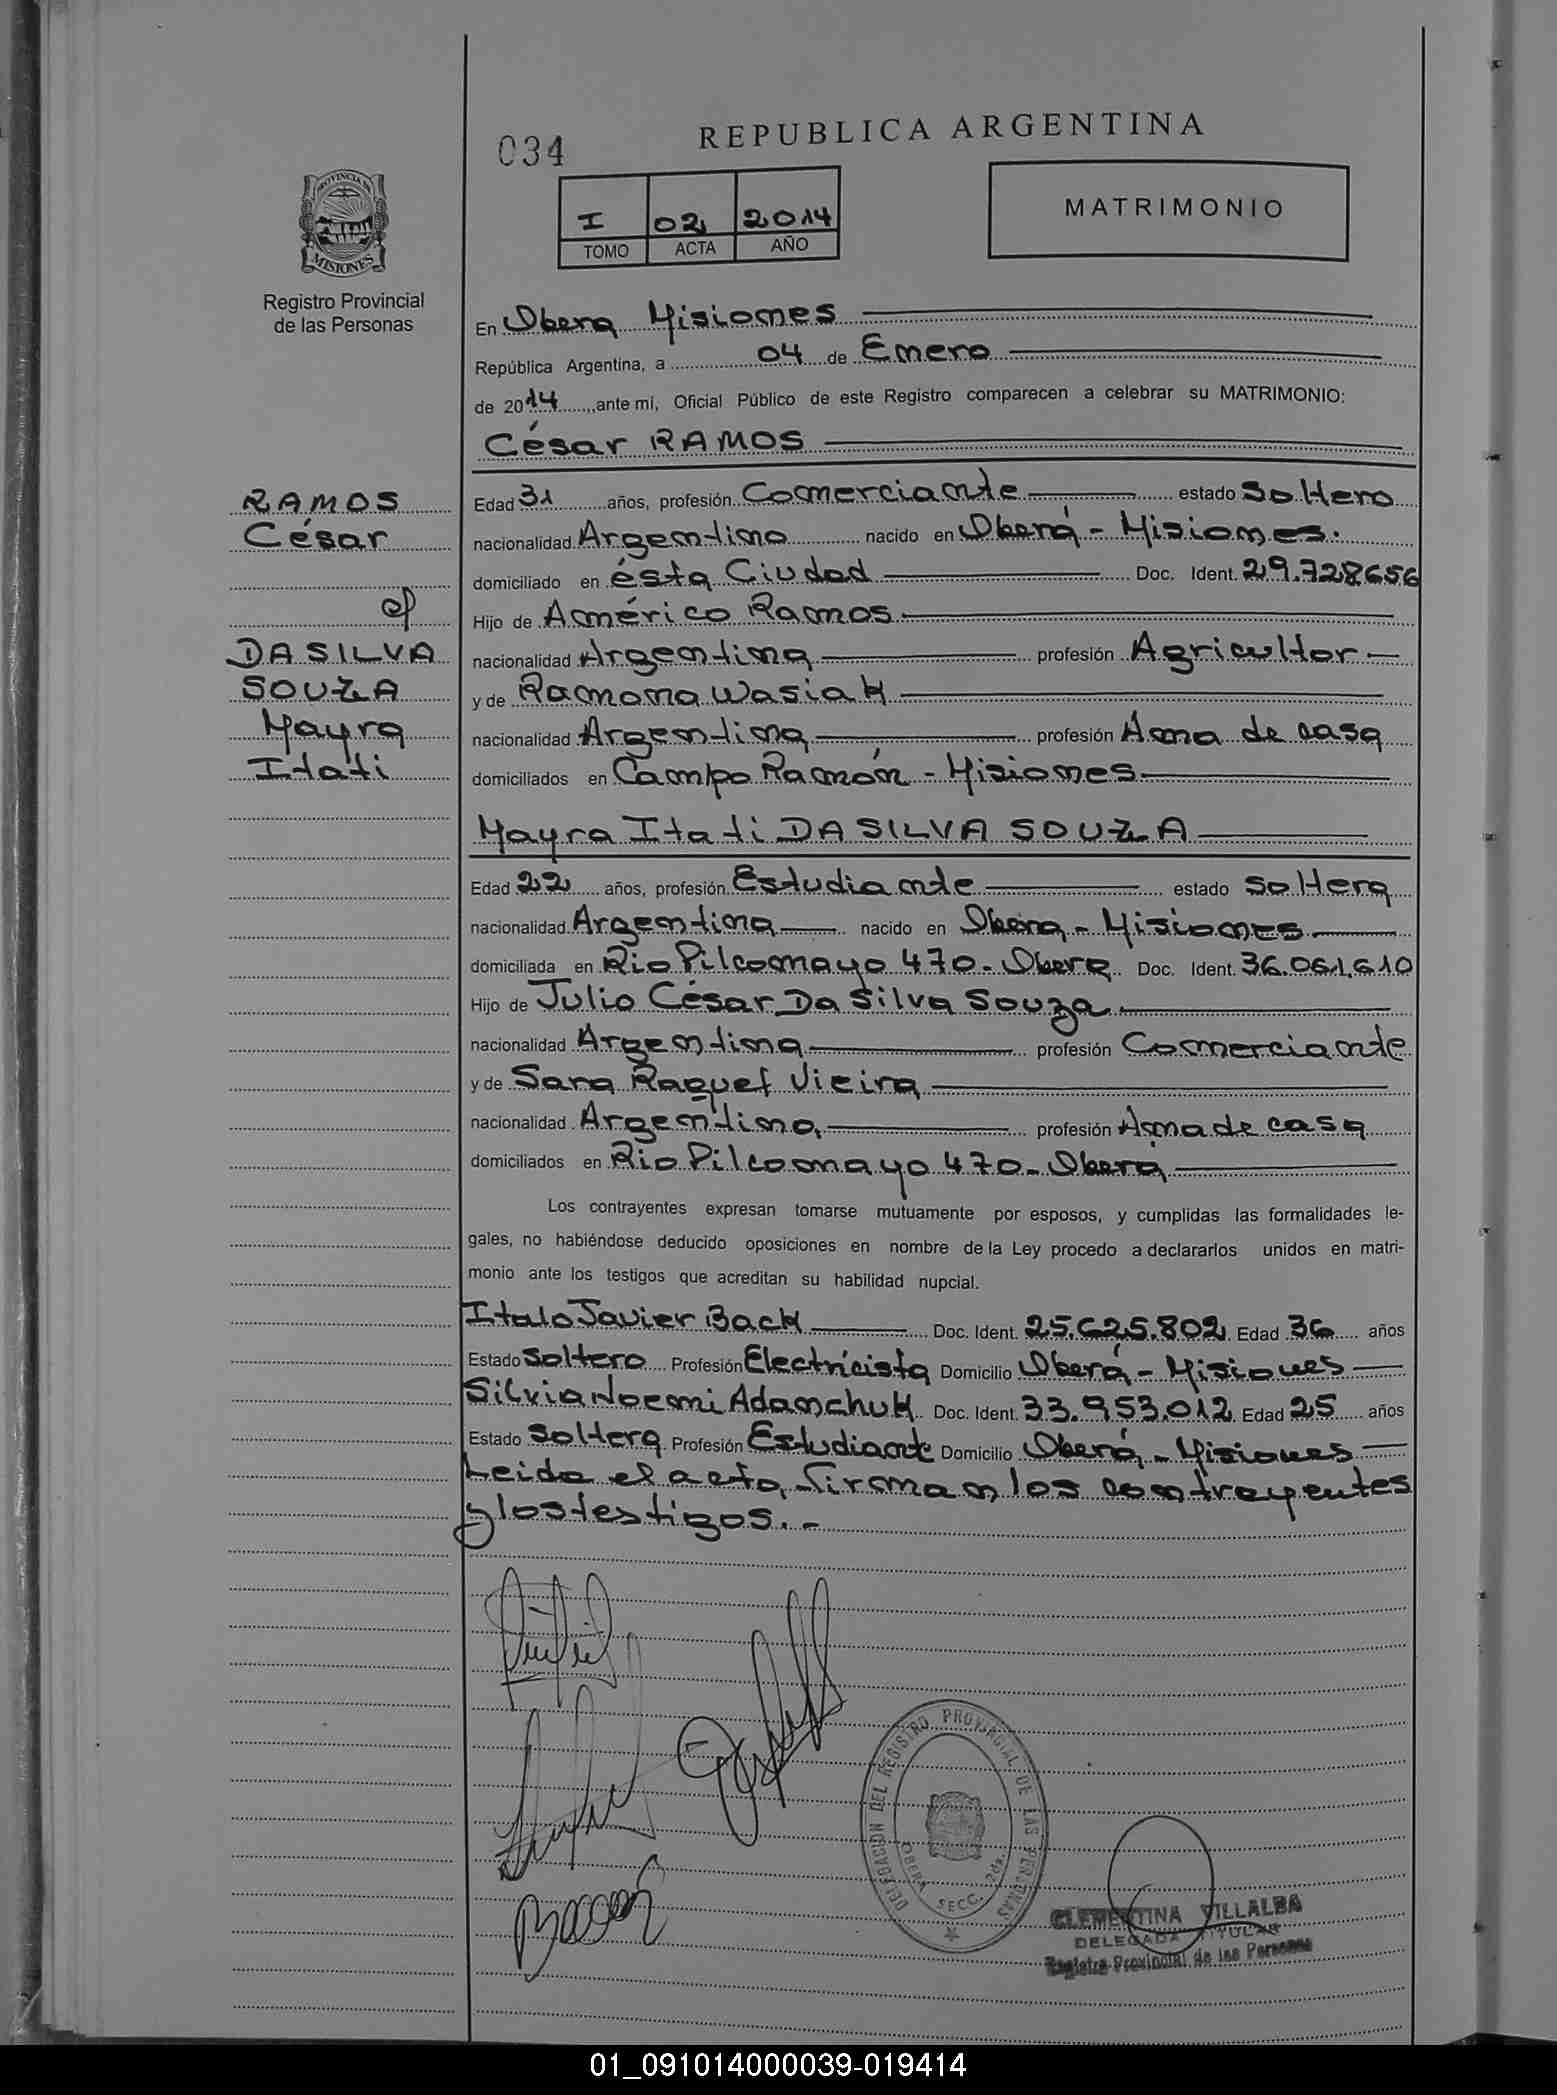 034
REPUBLICA ARGENTINA
I 02 2014
TOMO ACTA AÑO
MATRIMONIO
PROVINCIA DE
MISIONES
Registro Provincial
de las Personas
En Obera Misiones
República Argentina, a 04 de Enero
de 2014, ante mí, Oficial Público de este Registro comparecen a celebrar su MATRIMONIO:
César RAMOS
RAMOS
César
c/
DA SILVA
SOUZA
Mayra
Itatí
Edad 31 años, profesión Comerciante estado Soltero
nacionalidad Argentino nacido en Oberá - Misiones.
domiciliado en ésta Ciudad Doc. Ident. 29.728656
Hijo de Américo Ramos
nacionalidad Argentina profesión Agricultor
y de Ramona Wasiak
nacionalidad Argentina profesión Ama de casa
domiciliados en Campo Ramón - Misiones
Mayra Itati DA SILVA SOUZA
Edad 22 años, profesión Estudiante estado Soltera
nacionalidad Argentina nacido en Oberá - Misiones
domiciliada en Rio Pilcomayo 470 - Obera Doc. Ident. 36.061.610
Hijo de Julio César Da Silva Souza
nacionalidad Argentina profesión Comerciante
y de Sara Raquel Vieira
nacionalidad Argentina profesión Ama de casa
domiciliados en Rio Pilcomayo 470 - Oberá
Los contrayentes expresan tomarse mutuamente por esposos, y cumplidas las formalidades le-
gales, no habiéndose deducido oposiciones en nombre de la Ley procedo a declararlos unidos en matri-
monio ante los testigos que acreditan su habilidad nupcial.
Italo Javier Back Doc. Ident. 25.625.802 Edad 36 años
Estado Soltero Profesión Electricista Domicilio Oberá - Misiones
Silvia Noemi Adamchuk Doc. Ident. 33.953.012 Edad 25 años
Estado Soltera Profesión Estudiante Domicilio Oberá - Misiones
Leida el acta, firman los contrayentes
y los testigos. -
DELEGACION DEL REGISTRO PROVINCIAL DE LAS PERSONAS
OBERA SECC. 2da.
CLEMENTINA VILLALBA
DELEGADA TITULAR
Registro Provincial de las Personas
01_091014000039-019414